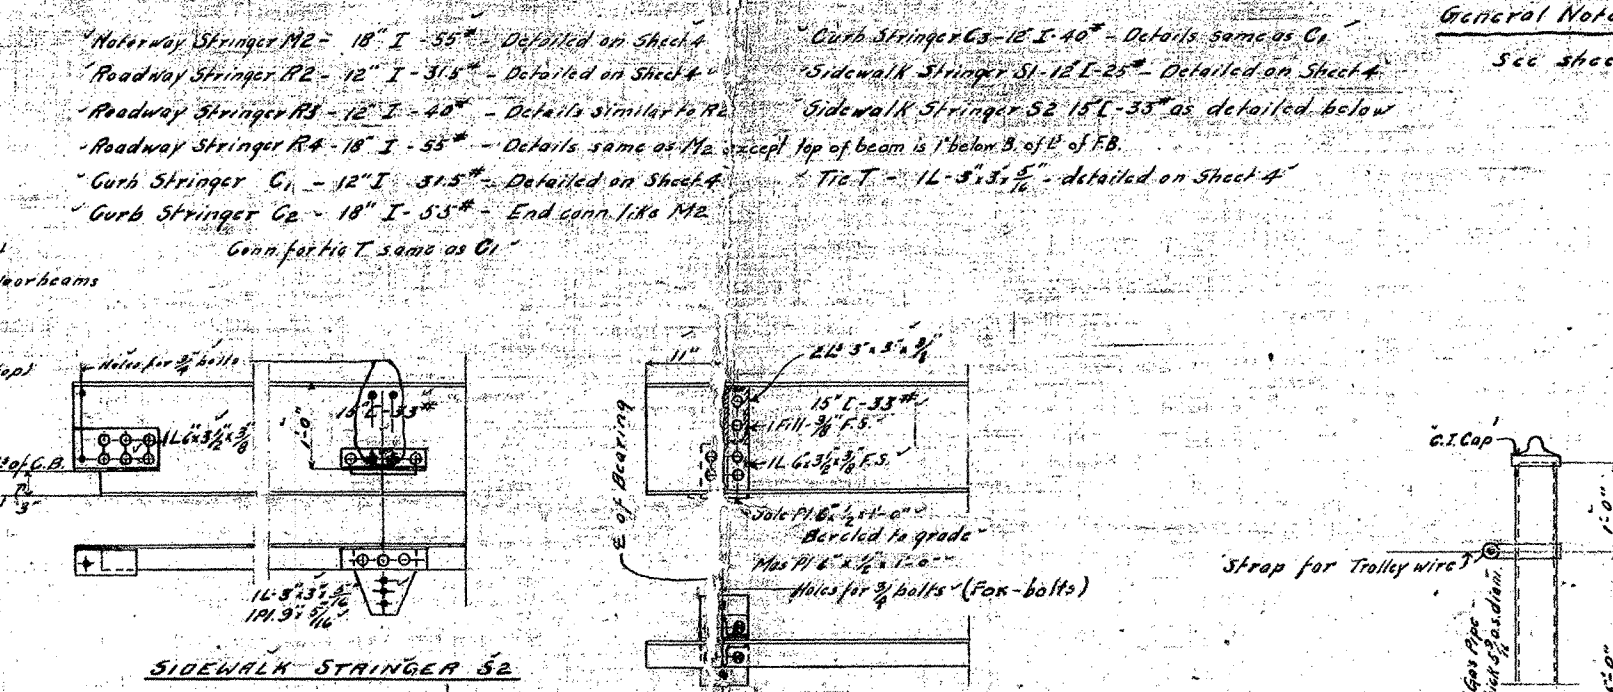 Motorway Stringer M2 - 18" I - 55# - Detailed on Sheet 4
Roadway Stringer R2 - 12" I - 31.5# - Detailed on Sheet 4
Roadway Stringer R3 - 12" I - 40# - Details similar to R2
Roadway Stringer R4 - 18" I - 55# - Details same as M2 except top of beam is 1" below B. of Ls of F.B.
Curb Stringer C1 - 12" I 31.5# - Detailed on Sheet 4
Curb Stringer C2 - 18" I - 55# - End conn. like M2
Conn for tie T same as C1
Curb Stringer C3 - 12" I - 40# - Details same as C1
Sidewalk Stringer S1 - 12" I - 25# - Detailed on Sheet 4
Sidewalk Stringer S2 15" [ - 33# as detailed below
Tie T - 1L - 3" x 3" x 5/16" - detailed on Sheet 4
General Note
See shee
loorbeams
Holes for 3/4" bolts
1L 6" x 3 1/2" x 3/8"
1'-0"
15" [ - 33#
t of C.B.
3"
1L - 3" x 3" x 5/16"
1Pl. 9" x 5/16"
SIDEWALK STRINGER S2
11"
2Ls 3" x 3" x 3/8"
15" [ - 33#
1 Fill - 3/8" F.S.
1L 6" x 3 1/2" x 3/8" F.S.
℄ of Bearing
Sole Pl. 6" x 1/2" x 1'-0"
Beveled to grade
Mas Pl 6" x 1/2" x 1'-0"
Holes for 3/4" bolts (Fox-bolts)
C.I. Cap
1'-0"
Strap for Trolley wire
Gas Pipe -
ick 5 9/16" o.s. diam